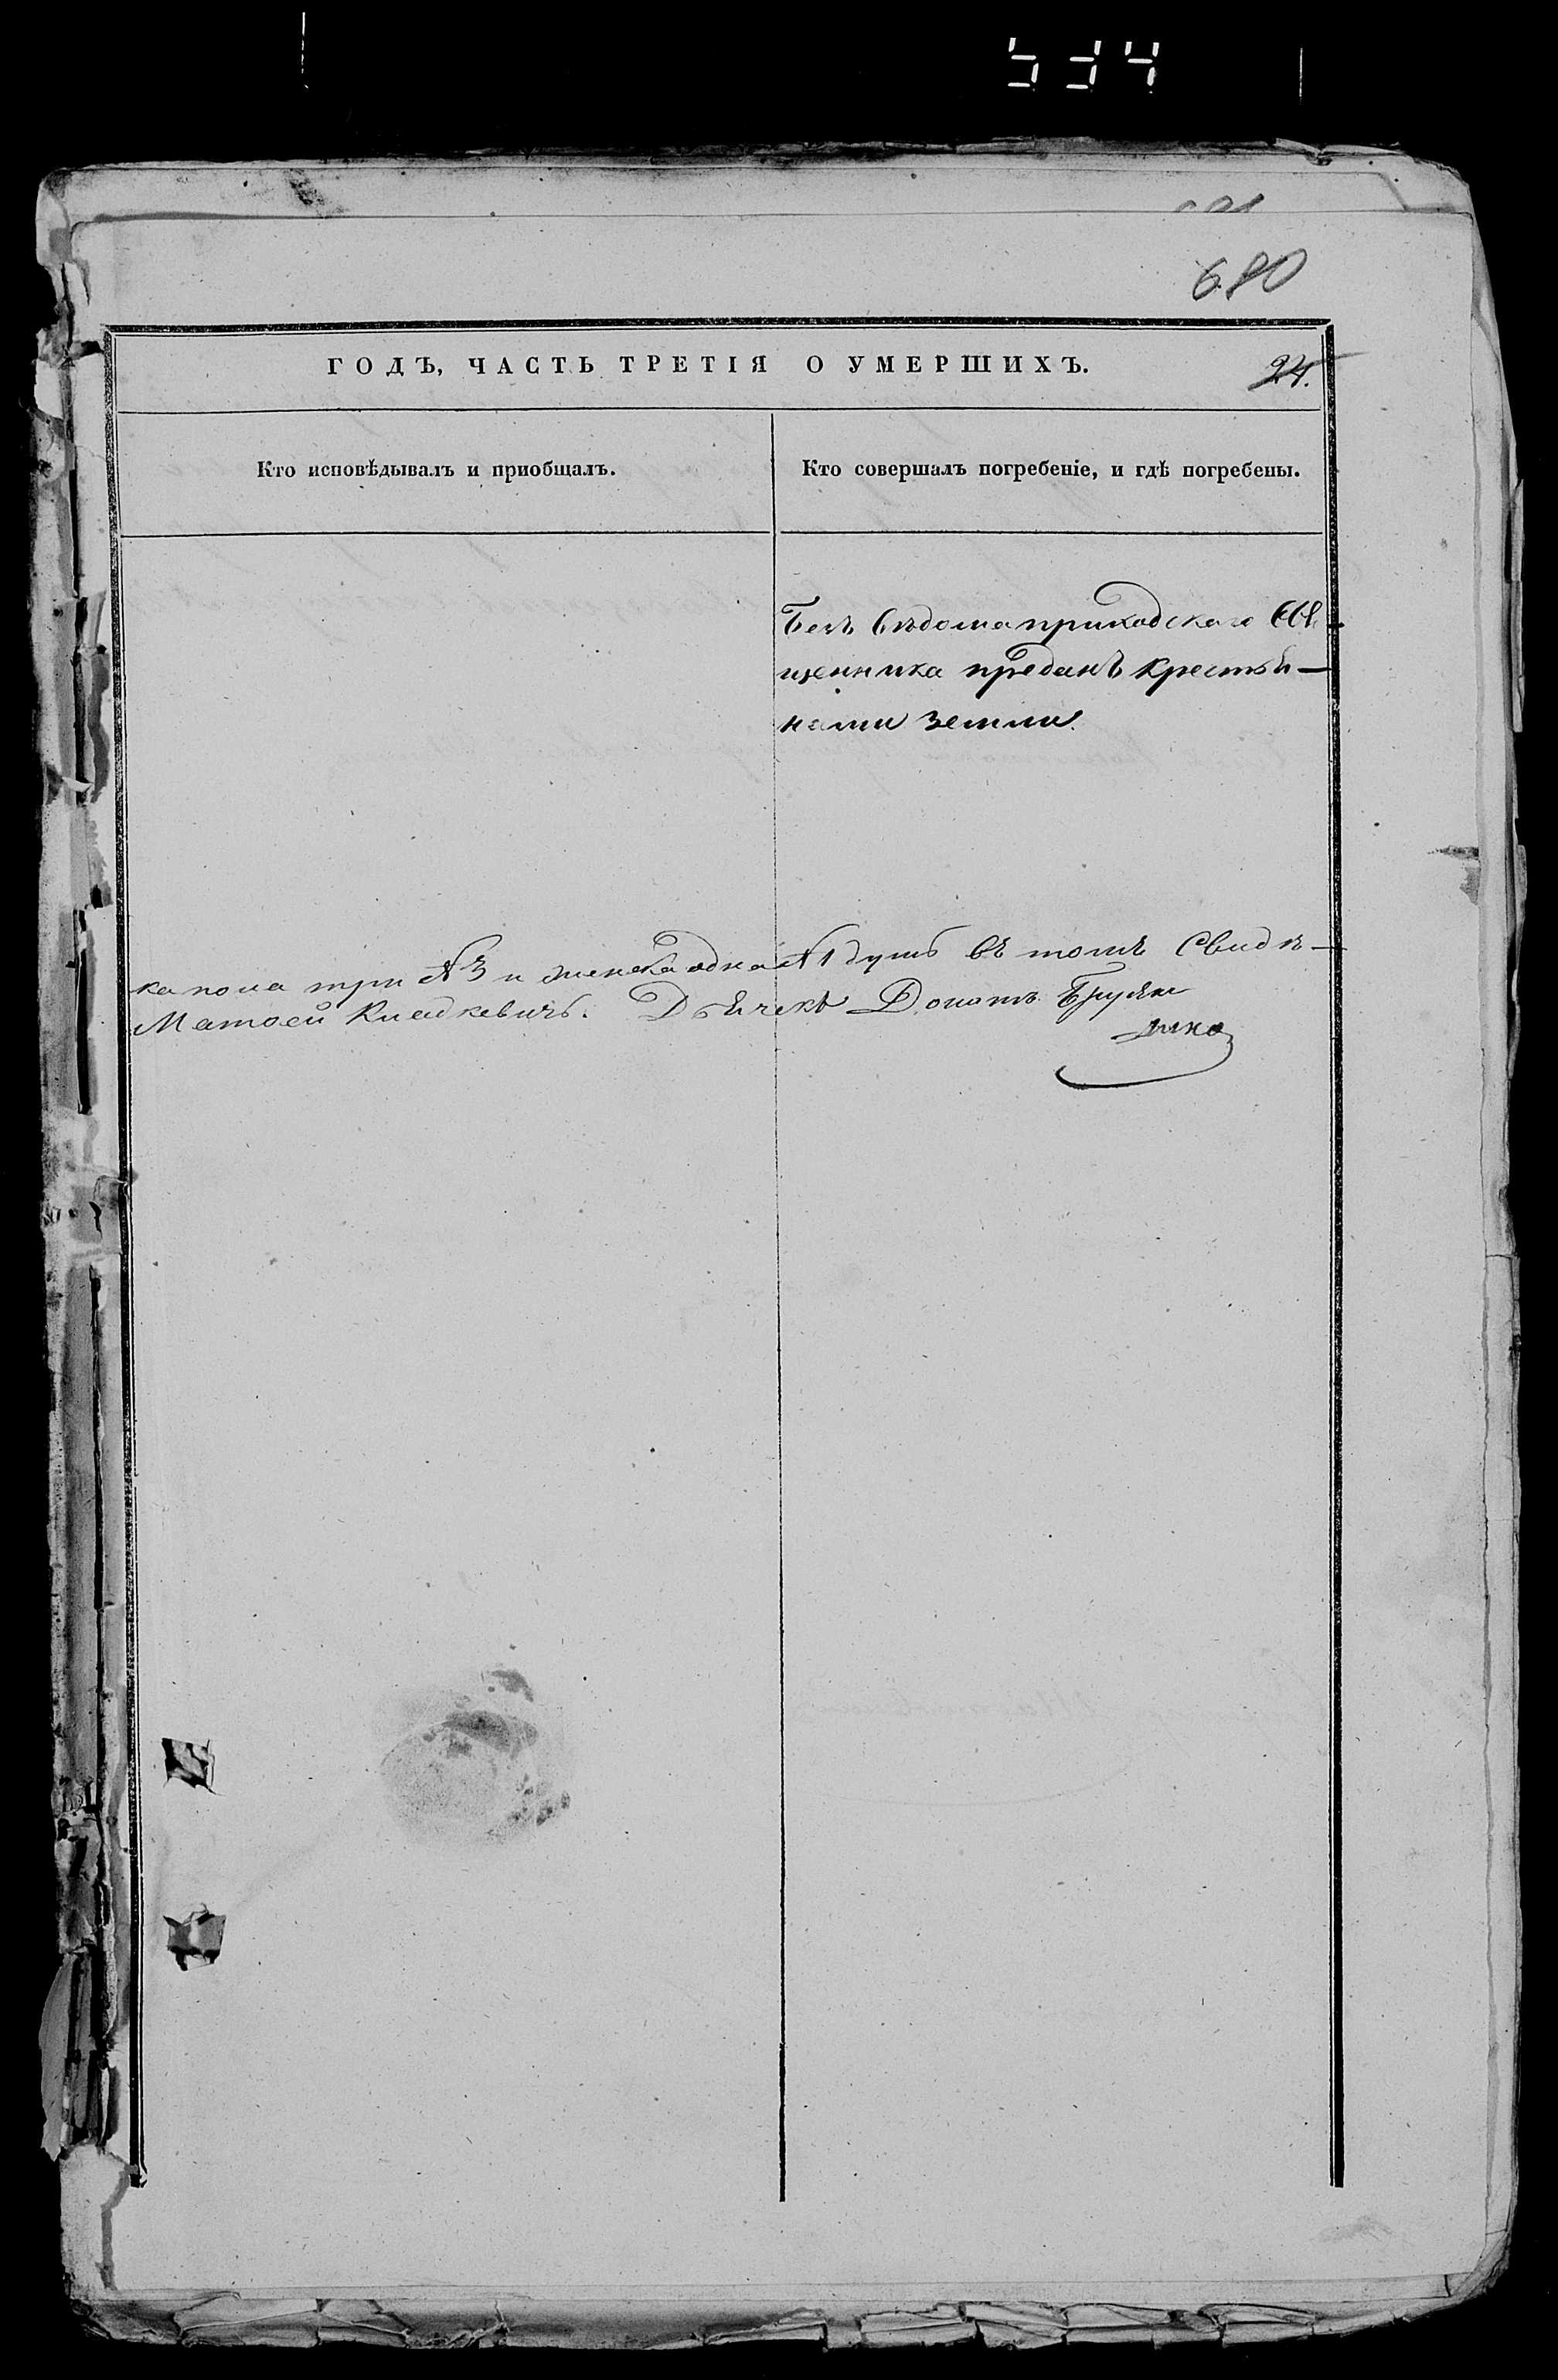 534
680
ГОДЪ, ЧАСТЬ ТРЕТІЯ О УМЕРШИХЪ.
24.
Кто исповѣдывалъ и приобщалъ.
Кто совершалъ погребеніе, и гдѣ погребены.
Безъ вѣдома приходскаго Свя-
щенника преданъ крестья-
нами земли.
ка пола три №3 и женска одна №1 душъ въ томъ Свидѣ-
Матѳей Кладкевичъ. Дьячекъ Донатъ